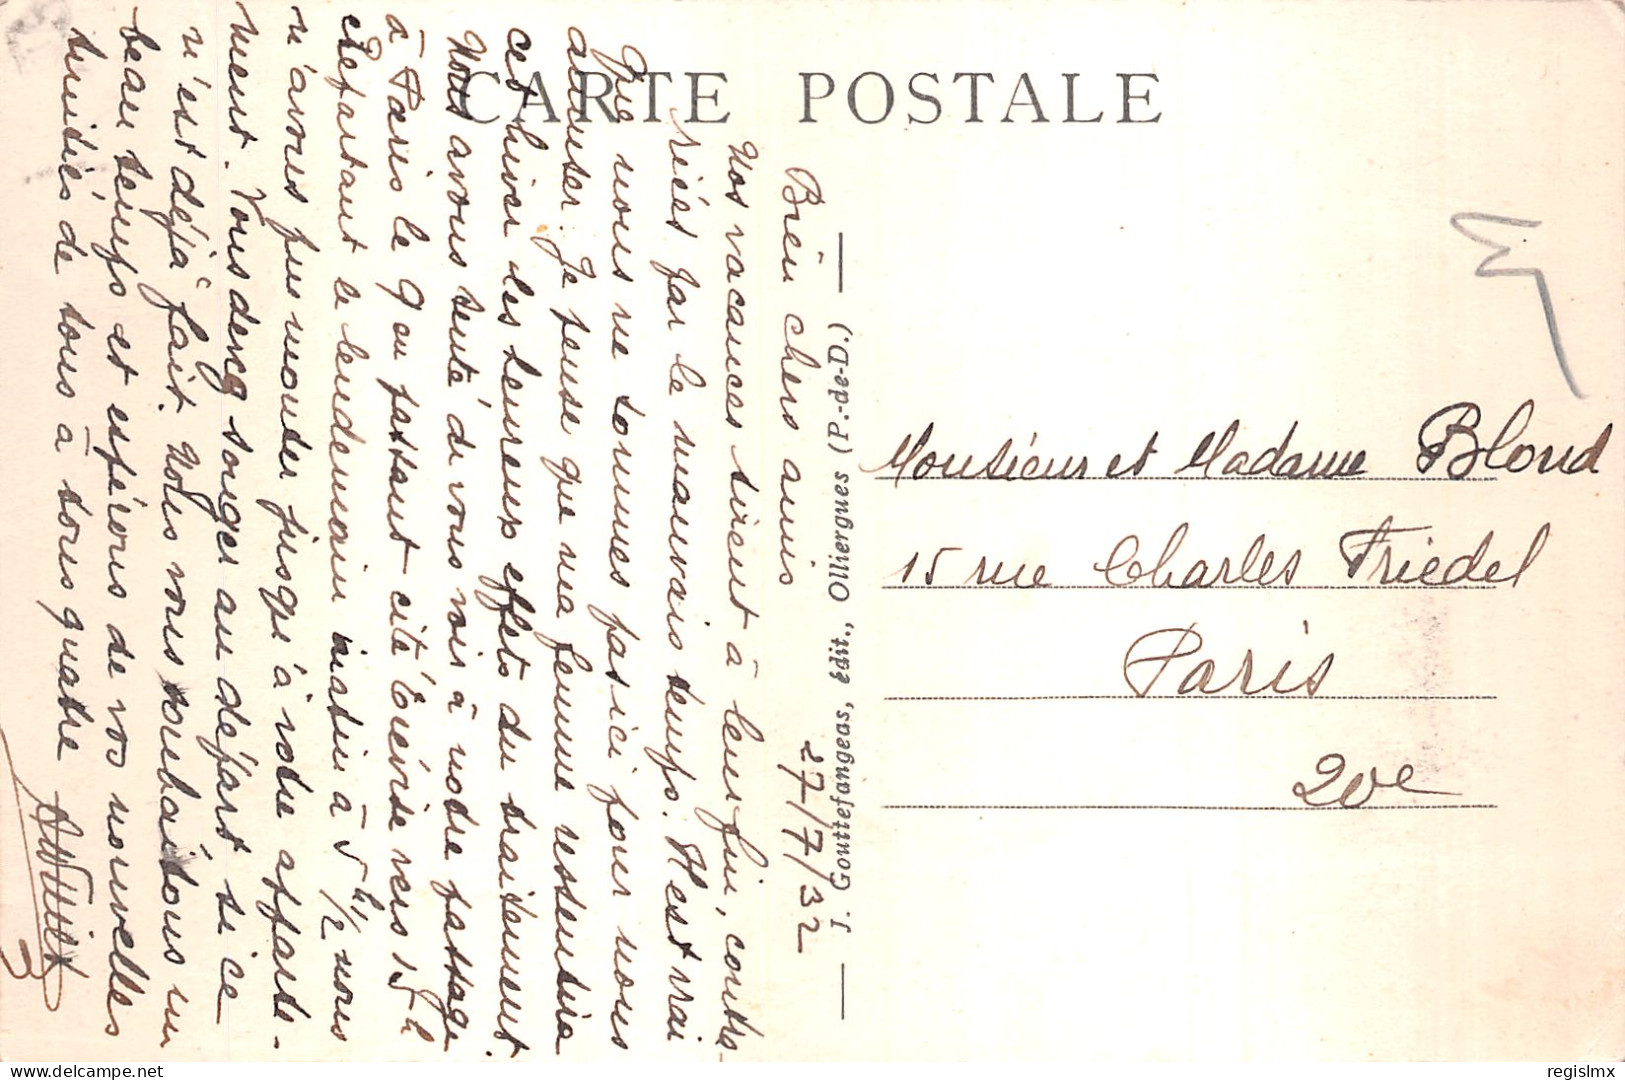 CARTE POSTALE
27/7/32
Bien chers amis
Nos vacances tirent à leur fin, contra-
riées par le mauvais temps. Il est vrai
que nous ne sommes pas ici pour nous
amuser. Je pense que ma femme ressentira
cet hiver les heureux effets du traitement.
Nous avons tenté de vous voir à notre passage
à Paris le 9 en passant cité Trévise vers 15h
Repartant le lendemain matin à 5h1/2 nous
n'avons pu monter jusqu'à votre apparte-
ment. Vous devez songer au départ si ce
n'est déjà fait. Nous vous souhaitons un
beau temps et espérons de vos nouvelles
Amitiés de tous à tous quatre
J. Gouttefangeas, édit., Olliergues (P.-de-D.)
Monsieur et Madame Blond
15 rue Charles Friedel
Paris
20e
3
regislmx